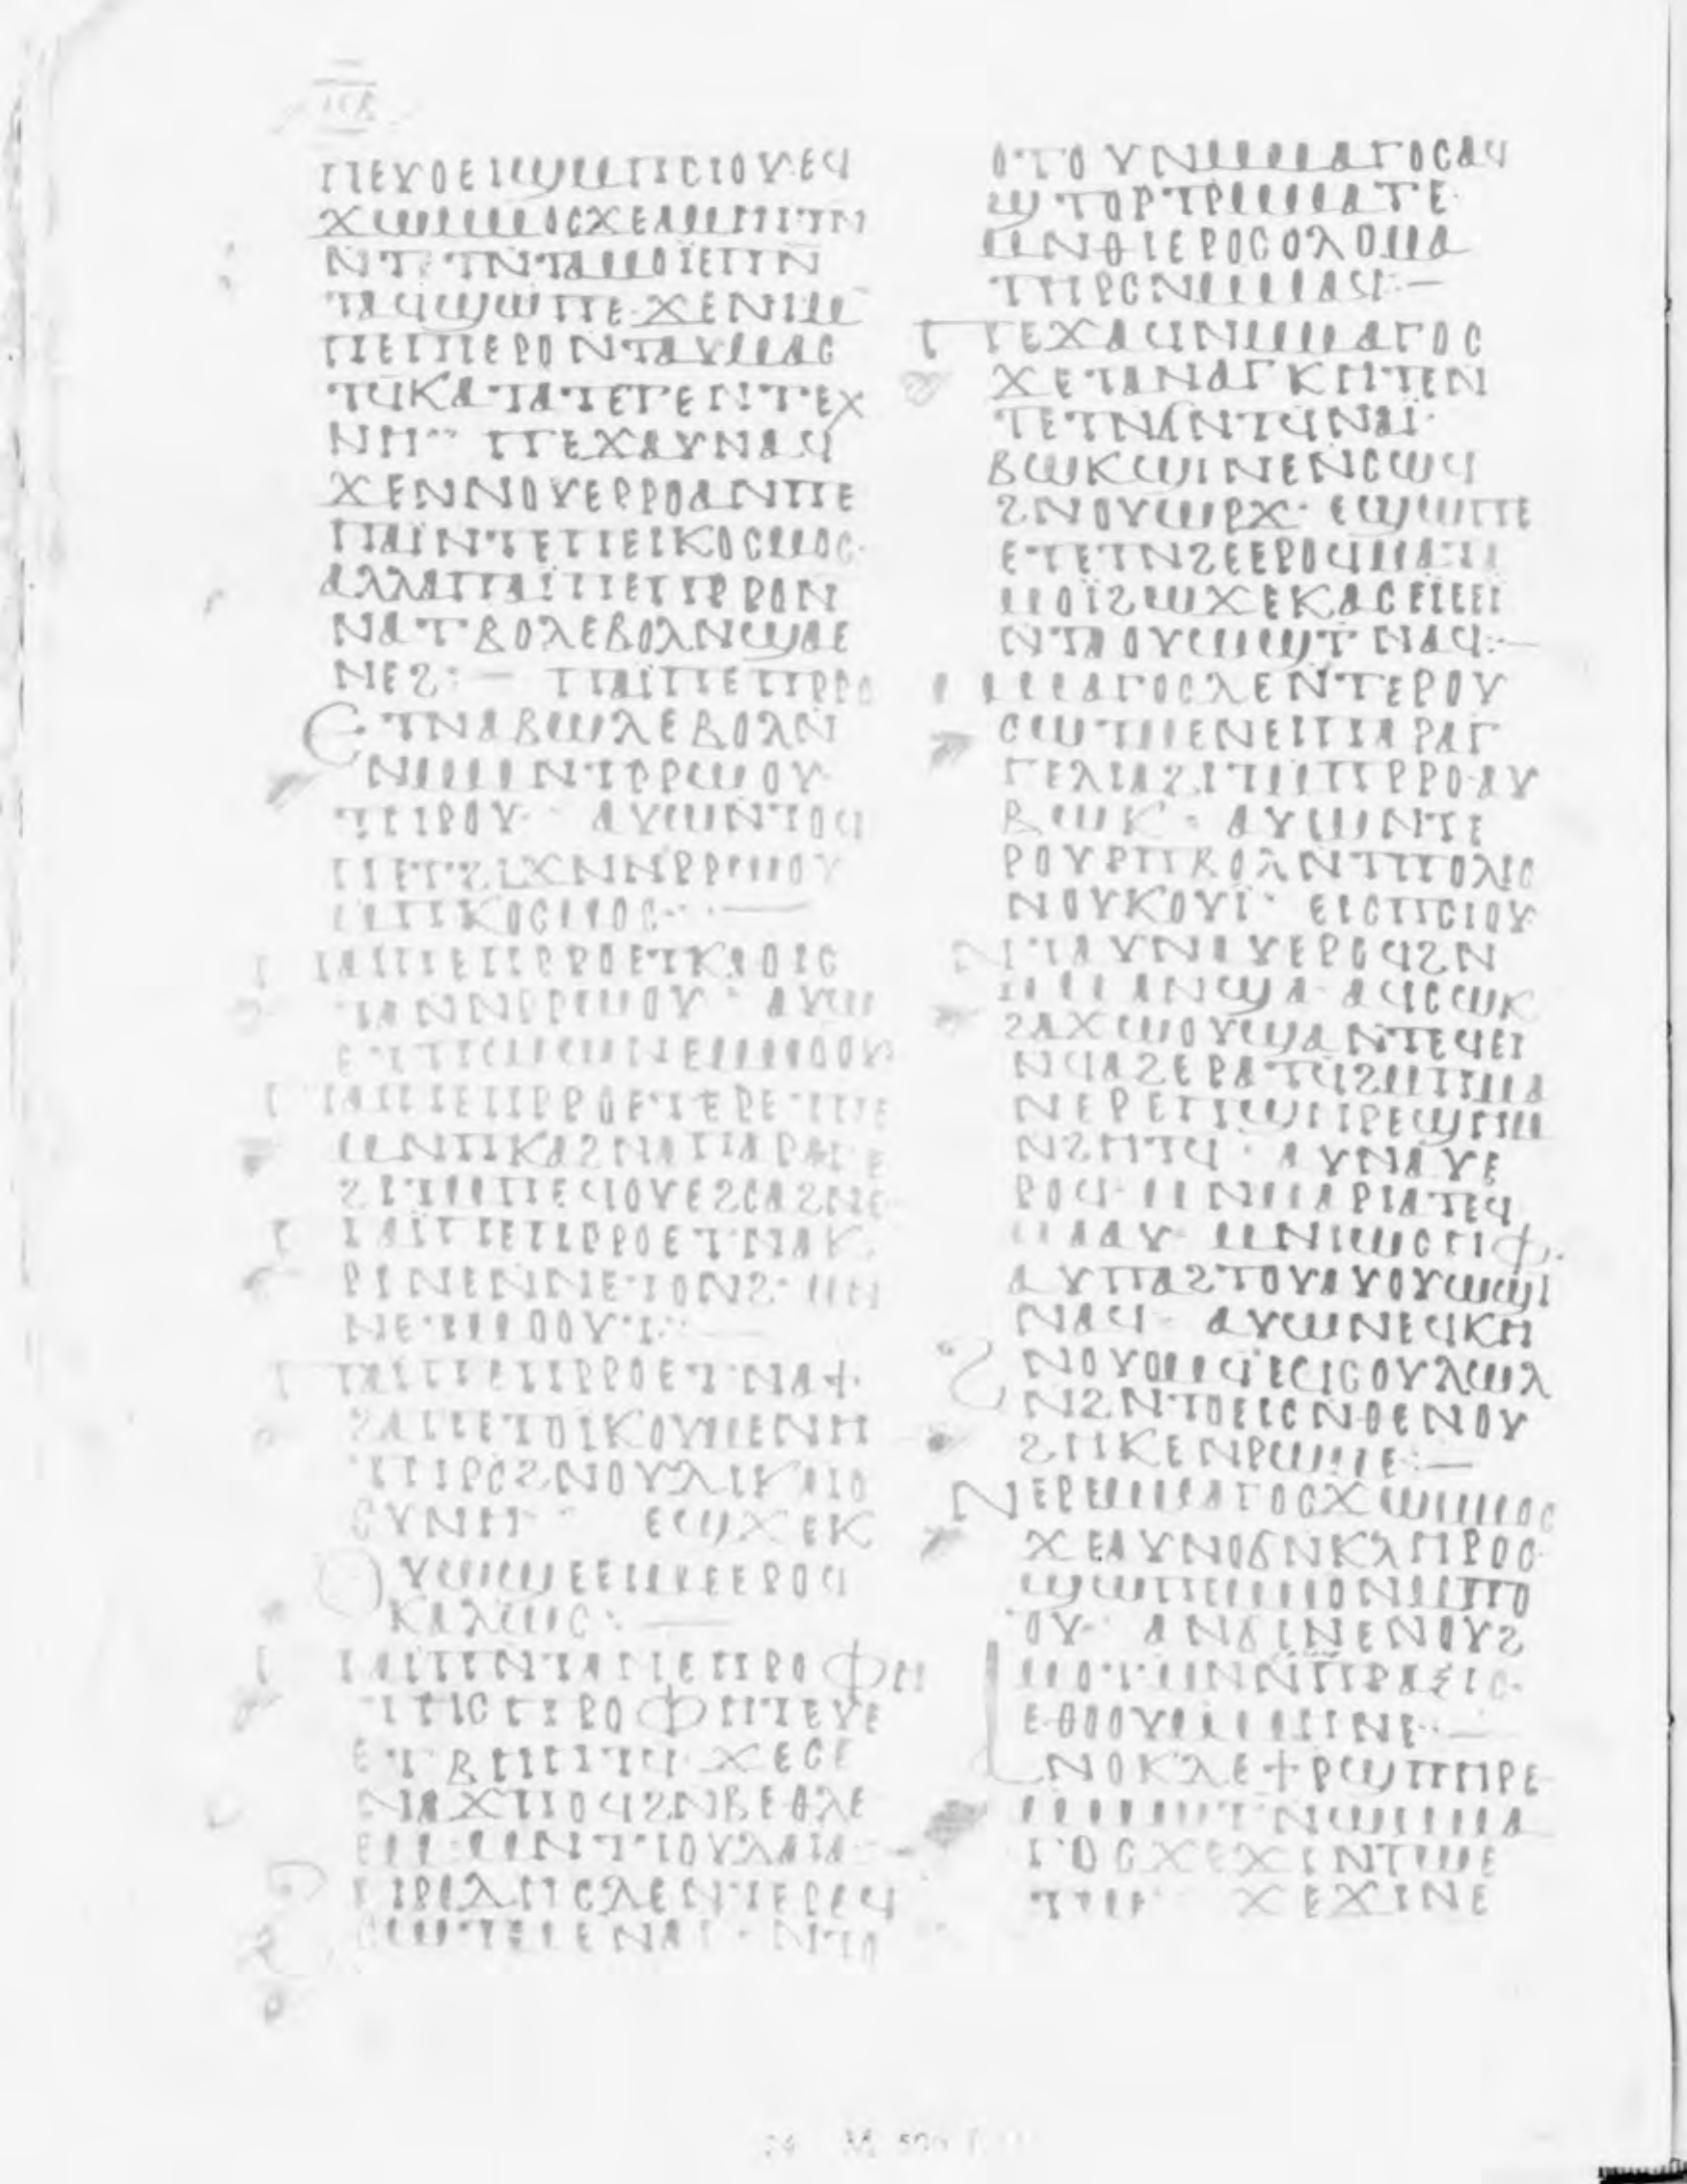 ⲡⲉⲩⲟⲉⲓϣⲙⲡⲥⲓⲟⲩ·ⲉϥ
ϫⲱⲙⲙⲟⲥϫⲉⲁⲙⲏⲓⲧⲛ
ⲛⲧⲉⲧⲛⲧⲁⲙⲟⲓ̈ⲉⲡⲛ
ⲧⲁϥϣⲱⲡⲉ·ϫⲉⲛⲓⲙ
ⲡⲉⲡⲉⲣⲟⲛⲧⲁⲩⲙⲁⲥ
ⲧϥⲕⲁⲧⲁⲧⲉⲓⲅⲉⲛⲧⲉⲭ
ⲛⲏ ⲡⲉϫⲁⲩⲛⲁϥ
ϫⲉⲛⲛⲟⲩⲉⲣⲣⲟⲁⲛⲡⲉ
ⲡⲁⲓ̈ⲛⲧⲉⲡⲉⲓⲕⲟⲥⲙⲟⲥ·
ⲁⲗⲗⲁⲡⲁⲓ̈ⲡⲉⲡⲣⲣⲟⲛ
ⲛⲁⲧⲃⲟⲗⲉⲃⲟⲗⲛϣⲁⲉ
ⲛⲉϩ:— ⲡⲁⲓ̈ⲡⲉⲡⲣⲣⲟ
ⲉⲧⲛⲁⲃⲱⲗⲉⲃⲟⲗⲛ
ⲛⲙⲛⲧⲣⲣⲱⲟⲩ
ⲧⲏⲣⲟⲩ· ⲁⲩⲱⲛⲧⲟϥ
ⲡⲉⲧϩⲓϫⲛⲛⲣⲣⲱⲟⲩ
ⲙⲡⲕⲟⲥⲙⲟⲥ·:—
ⲡⲁⲓⲡⲉⲡⲣⲣⲟⲉⲧⲕⲁⲑⲓⲥ
ⲧⲁⲛⲛⲣⲣⲱⲟⲩ· ⲁⲩⲱ
ⲉⲧⲡⲱⲱⲛⲉⲙⲙⲟⲟⲩ·
ⲡⲁⲓⲡⲉⲡⲣⲣⲟⲉⲧⲉⲣⲉⲧⲡⲉ
ⲙⲛⲡⲕⲁϩⲛⲁⲡⲁⲣⲁⲅⲉ
ϩⲓⲧⲙⲡⲉϥⲟⲩⲉϩⲥⲁϩⲛⲉ·
ⲡⲁⲓ̈ⲡⲉⲡⲣⲣⲟⲉⲧⲛⲁⲕ
ⲣⲓⲛⲉⲛⲛⲉⲧⲟⲛϩ·ⲙⲛ
ⲛⲉⲧⲙⲟⲟⲩⲧ:·—
ⲡⲁⲓⲡⲉⲡⲣⲣⲟⲉⲧⲛⲁϯ
ϩⲁⲡⲉⲧⲟⲓⲕⲟⲩⲙⲉⲛⲏ
ⲧⲏⲣⲥϩⲛⲟⲩⲇⲓⲕⲁⲓⲟ
ⲥⲩⲛⲏ· ⲉϣϫⲉⲕ
ⲟⲩⲱϣⲉⲉⲓⲙⲉⲉⲣⲟϥ
ⲕⲁⲗⲱⲥ:—
ⲡⲁⲓⲡⲉⲛⲧⲁⲡⲉⲡⲣⲟⲫⲏ
ⲧⲏⲥⲡⲣⲟⲫⲏⲧⲉⲩⲉ
ⲉⲧⲃⲏⲏⲧϥ·ϫⲉⲥⲉ
ⲛⲁϫⲡⲟϥϩⲛⲃⲉⲑⲗⲉ
ⲉⲙ·ⲙⲛϯⲟⲩⲇⲁⲓⲁ·
ϩⲏⲣⲱⲇⲏⲥⲇⲉⲛⲧⲉⲣⲉϥ
ⲥⲱⲧⲙⲉⲛⲁⲓ· ⲛⲧⲟ
ⲟⲧⲟⲩⲛⲙⲙⲁⲅⲟⲥⲁϥ
ϣⲧⲟⲣⲧⲣⲙⲙⲁⲧⲉ·
ⲙⲛⲑⲓⲉⲣⲟⲥⲟⲗⲟⲙⲁ
ⲧⲏⲣⲥⲛⲙⲙⲁϥ:—
ⲡⲉϫⲁϥⲛⲙⲙⲁⲅⲟⲥ
ϫⲉⲧⲁⲛⲁⲅⲕⲏⲧⲉⲛ
ⲧⲉⲧⲛϭⲛⲧϥⲛⲁⲓ̈·
ⲃⲱⲕϣⲓⲛⲉⲛⲥⲱϥ
ϩⲛⲟⲩⲱⲣϫ· ⲉϣⲱⲡⲉ
ⲉⲧⲉⲧⲛϩⲉⲉⲣⲟϥⲙⲁⲧⲁ
ⲙⲟⲓ̈ϩⲱϫⲉⲕⲁⲥⲉⲓ̈ⲉⲉⲓ
ⲛⲧⲁⲟⲩⲱϣⲧⲛⲁϥ:—
ⲙⲙⲁⲅⲟⲥⲇⲉⲛⲧⲉⲣⲟⲩ
ⲥⲱⲧⲙⲉⲛⲉⲓⲡⲁⲣⲁⲅ
ⲅⲉⲗⲓⲁϩⲓⲧⲙⲡⲣⲣⲟ·ⲁⲩ
ⲃⲱⲕ· ⲁⲩⲱⲛⲧⲉ
ⲣⲟⲩⲣⲡⲃⲟⲗⲛⲧⲡⲟⲗⲓⲥ
ⲛⲟⲩⲕⲟⲩⲓ̈· ⲉⲓⲥⲡⲥⲓⲟⲩ
ⲛⲧⲁⲩⲛⲁⲩⲉⲣⲟϥϩⲛ
ⲙⲙⲁⲛϣⲁ· ⲁϥⲥⲱⲕ
ϩⲁϫⲱⲟⲩϣⲁⲛⲧⲉϥⲉⲓ
ⲛϥⲁϩⲉⲣⲁⲧϥϩⲙⲡⲙⲁ
ⲛⲉⲣⲉⲡϣⲏⲣⲉϣⲏⲙ
ⲛϩⲏⲧϥ· ⲁⲩⲛⲁⲩⲉ
ⲣⲟϥ·ⲙⲛⲙⲁⲣⲓⲁⲧⲉϥ
ⲙⲁⲁⲩ· ⲙⲛⲓⲱⲥⲏⲫ·
ⲁⲩⲡⲁϩⲧⲟⲩⲁⲩⲟⲩⲱϣⲧ
ⲛⲁϥ· ⲁⲩⲱⲛⲉϥⲕⲏ
ϩⲛⲟⲩⲟⲙϥⲉϥϭⲟⲩⲗⲱⲗ
ⲛϩⲛⲧⲟⲉⲓⲥⲛⲑⲉⲛⲟⲩ
ϩⲏⲕⲉⲛⲣⲱⲙⲉ:—
ⲛⲉⲣⲉⲙⲙⲁⲅⲟⲥϫⲱⲙⲙⲟⲥ
ϫⲉⲁⲩⲛⲟϭⲛⲕⲗⲏⲣⲟⲥ
ϣⲱⲡⲉⲙⲙⲟⲛⲙⲡⲟ
ⲟⲩ· ⲁⲛϭⲓⲛⲉⲛⲟⲩϩ
ⲙⲟⲧⲙⲛⲛⲡⲣⲁⲝⲓⲥ·
ⲉⲑⲟⲟⲩⲙⲙⲓⲛⲉ:·—
ⲁⲛⲟⲕⲇⲉϯⲣϣⲡⲏⲣⲉ
ⲙⲙⲱⲧⲛⲱⲙⲙⲁ
ⲅⲟⲥϫⲉϫⲓⲛⲧⲱⲉ
ϫⲉϫⲓⲛⲉ